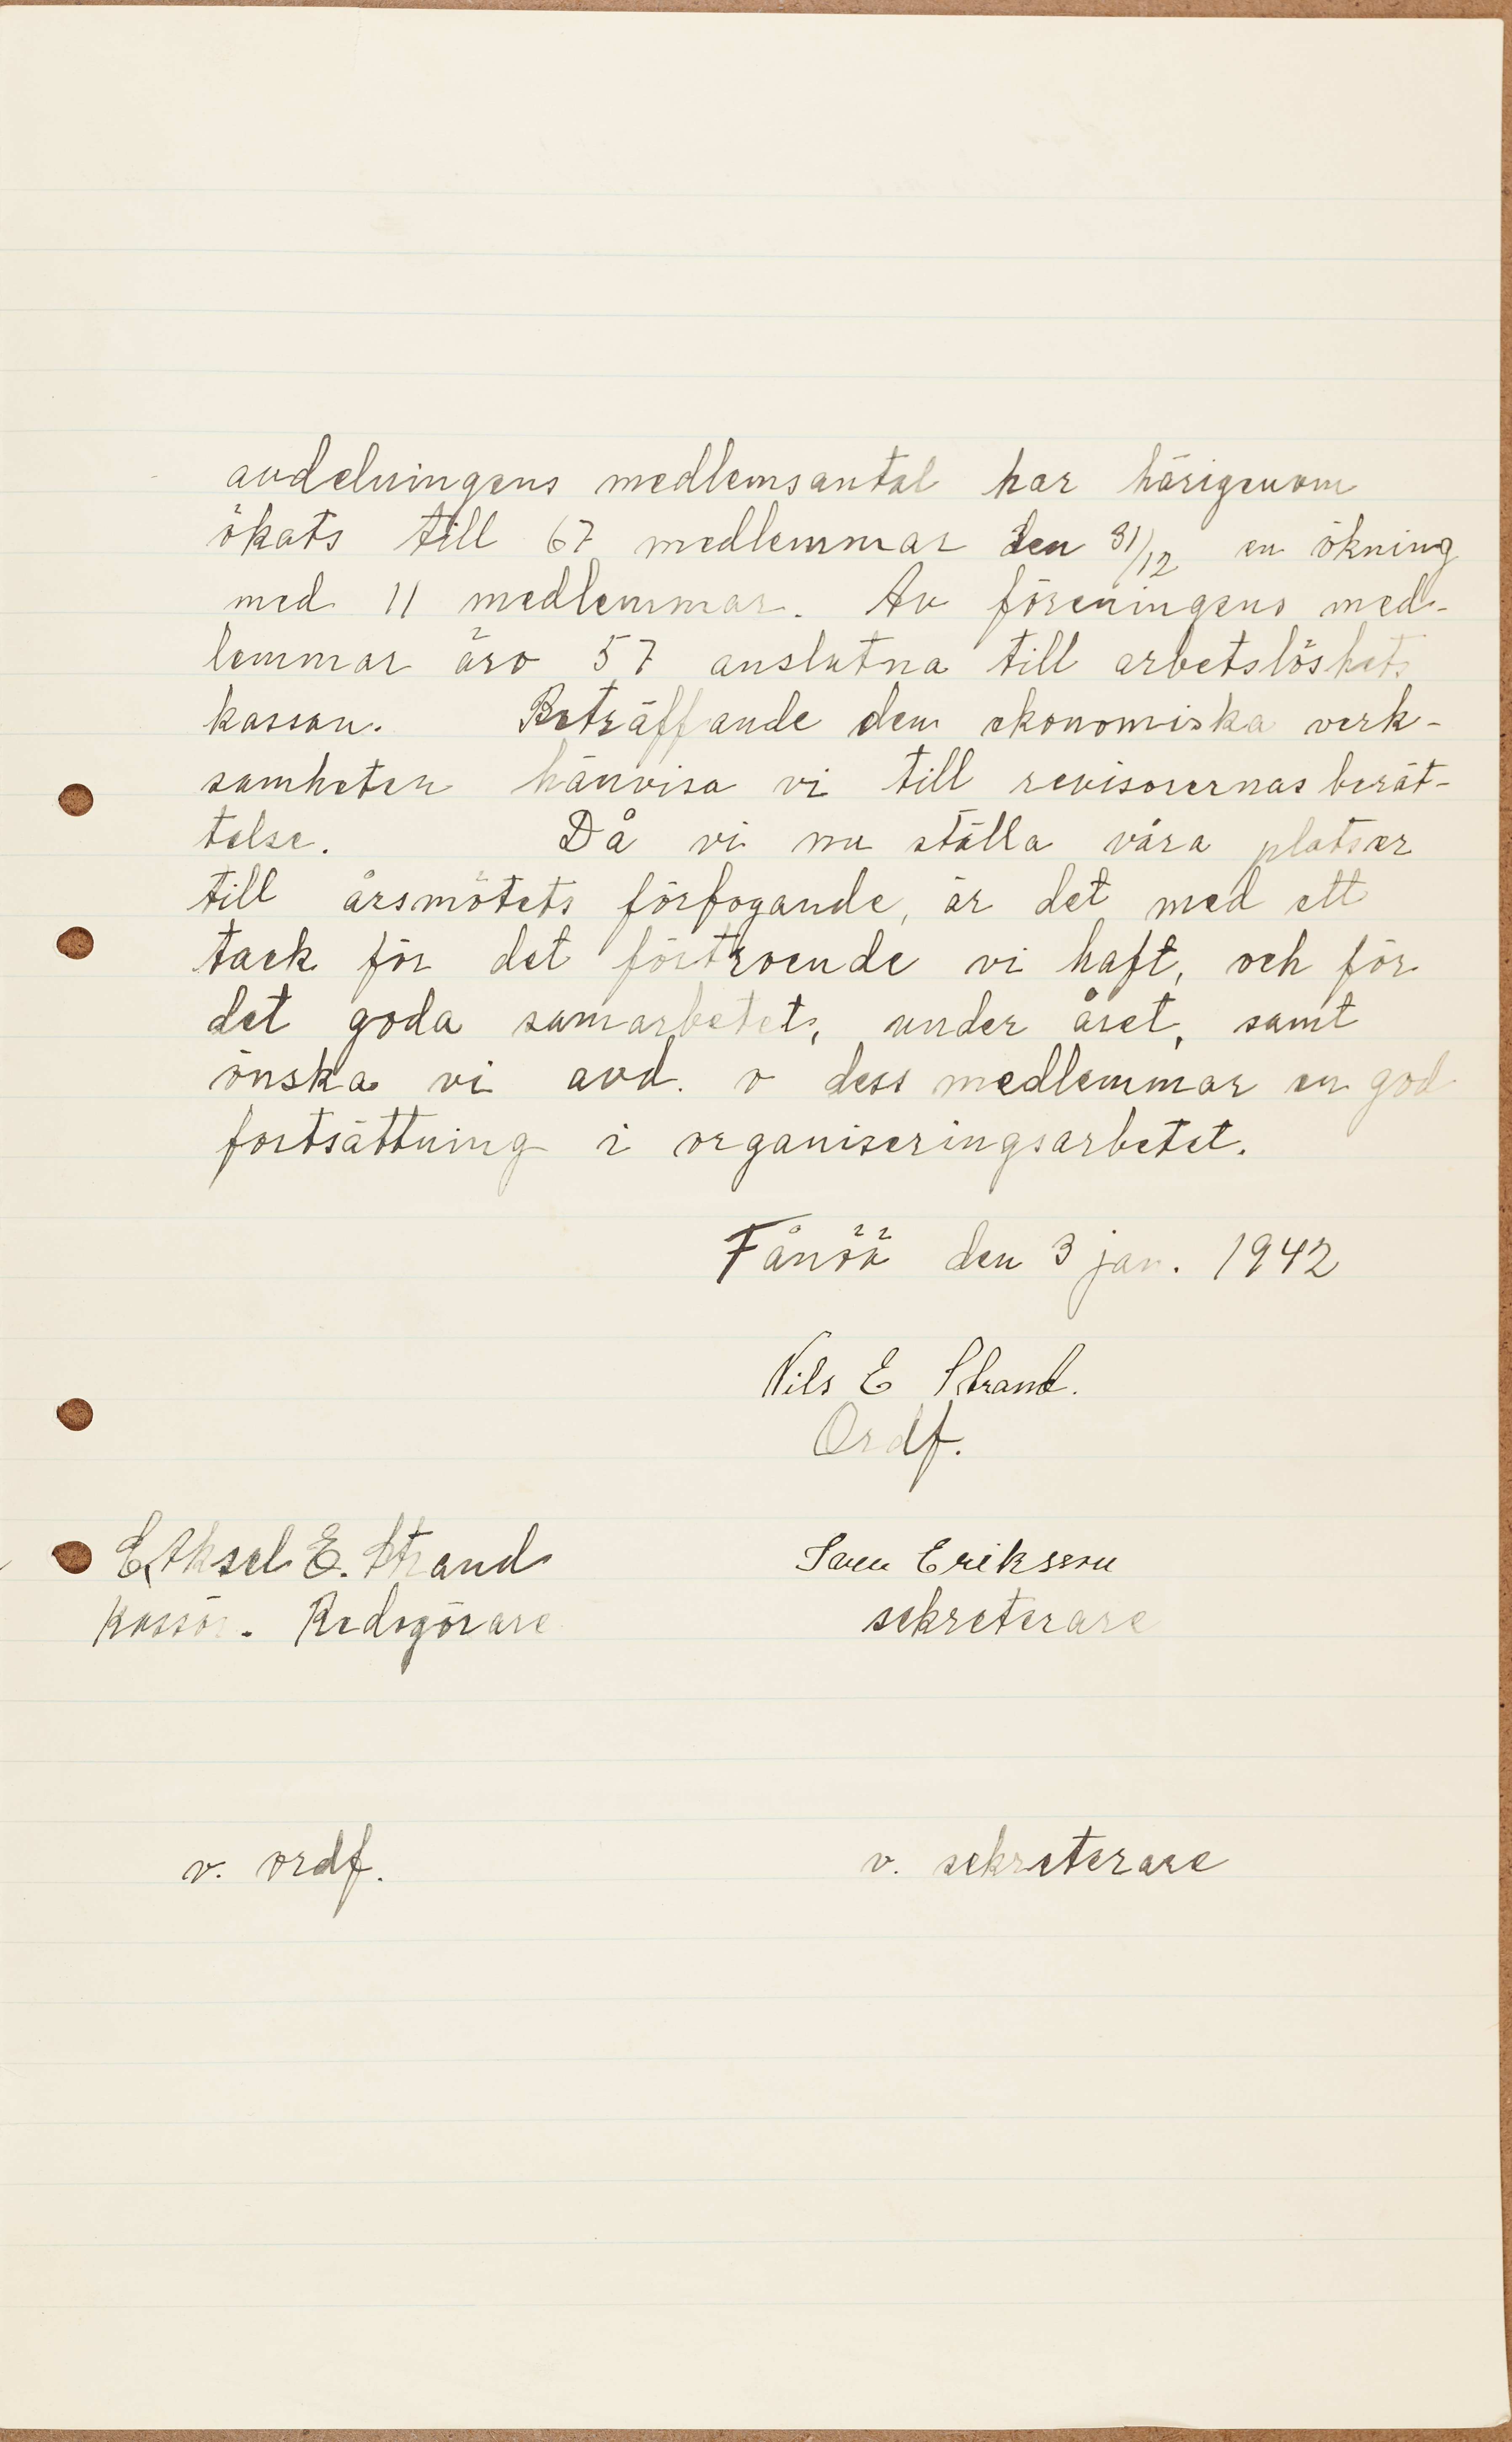 avdelningens medlemsantal har härigenom
ökats till 67 medlemmar den 31/12 en ökning
med 11 medlemmar. Av föreningens med-
lemmar äro 57 anslutna till arbetslöshets
kassan. Beträffande den ekonomiska verk-
samheten hänvisa vi till revisorernas berät-
telse. Då vi nu ställa våra platser
till årsmötets förfogande, är det med ett
tack för det förtroende vi haft, och för
det goda samarbetet, under året, samt
önska vi avd. o dess medlemmar en god
fortsättning i organiseringsarbetet.
Fånöö den 3 jan. 1942
Nils E Strand.
Ordf.
E. Aksel E. Strand Sven Eriksson
Kassör. Redogörare sekreterare
v. ordf. v. sekreterare